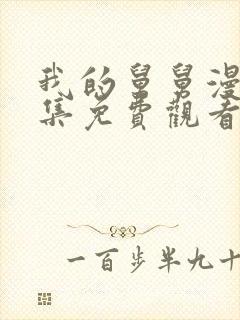 我的舅舅漫
集免費觀看
一百步半九十